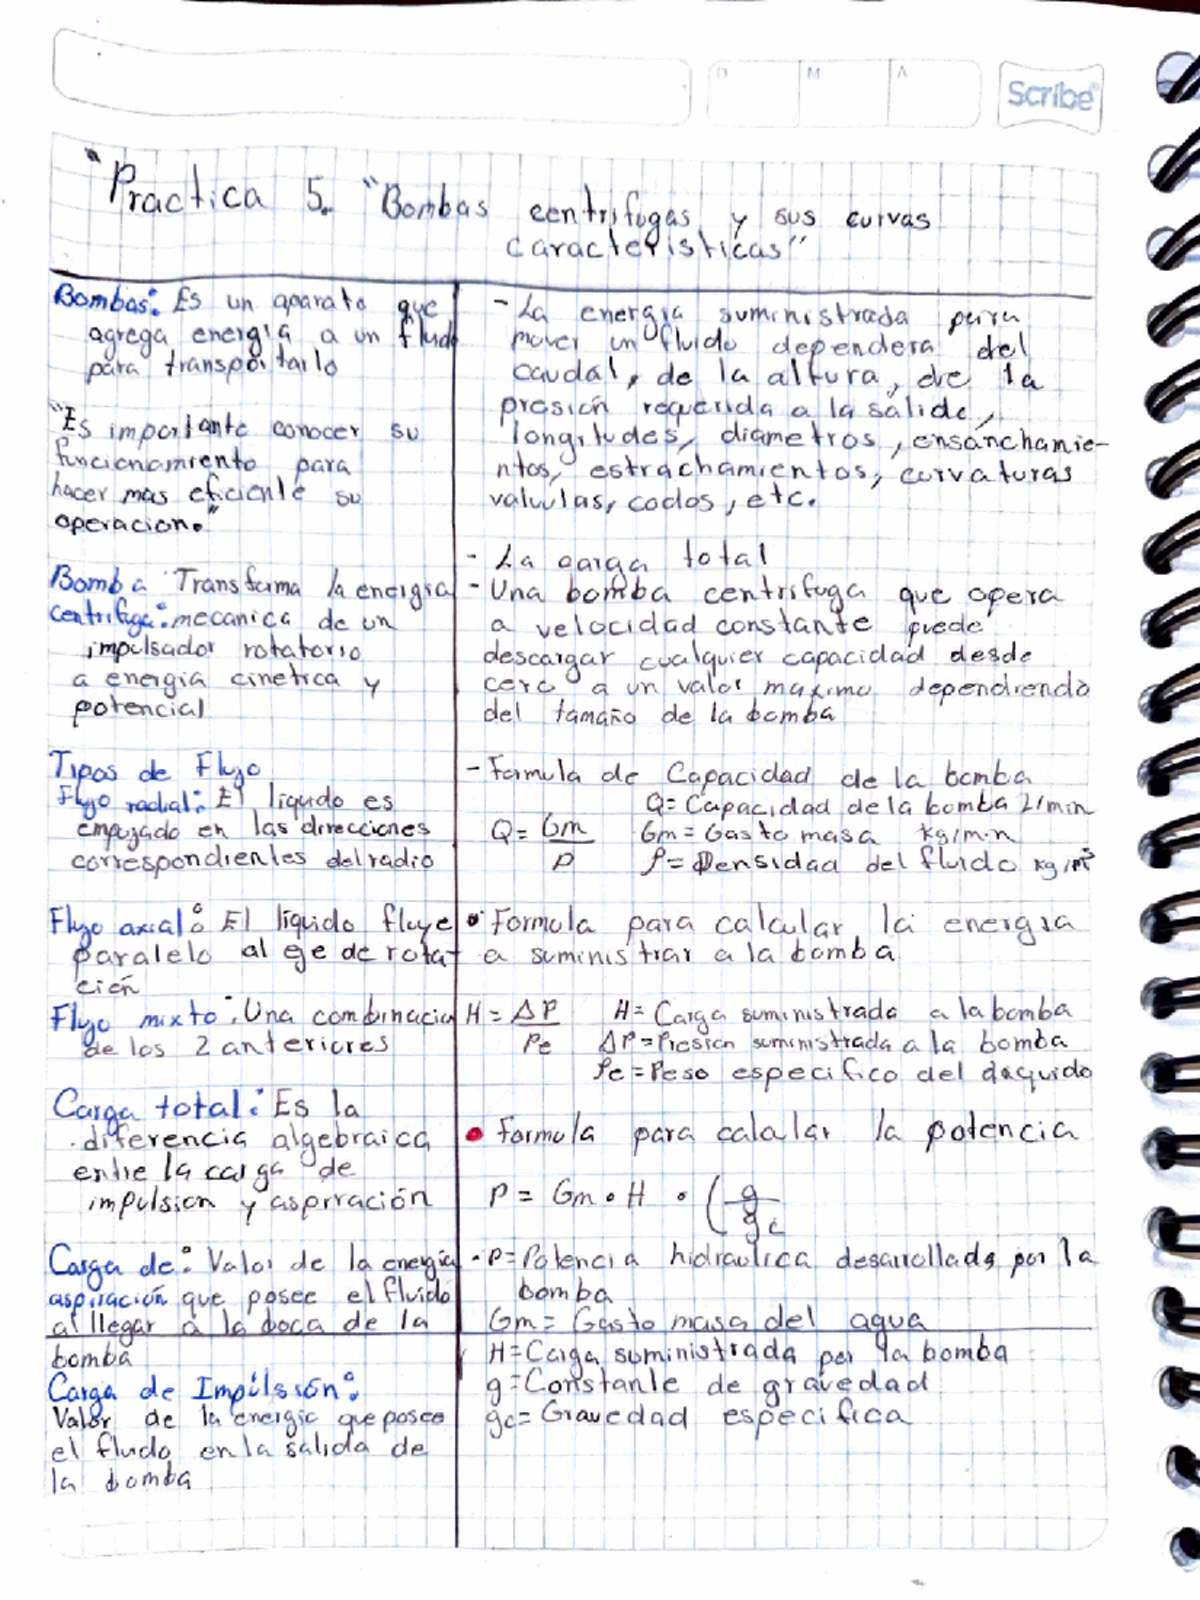 D M A
Scribe
"Practica 5. "Bombas centrifugas y sus curvas
caracteristicas"
Bombas: Es un aparato que
agrega energia a un fluido
para transportarlo
"Es importante conocer su
funcionamiento para
hacer mas eficiente su
operacion."
Bomba Transforma la energia
centrifuga: mecanica de un
impulsador rotatorio
a energia cinetica y
potencial
Tipos de Flujo
Flujo radial: El liquido es
empujado en las direcciones
correspondientes del radio
Flujo axial: El liquido fluye
paralelo al eje de rota-
ción
Flujo mixto: Una combinacion
de los 2 anteriores
Carga total: Es la
diferencia algebraica
entre la carga de
impulsion y aspiración
Carga de: Valor de la energia
aspiración que posee el fluido
al llegar a la boca de la
bomba
Carga de Impulsión:
Valor de la energia que posee
el fluido en la salida de
la bomba
- La energia suministrada para
mover un fluido dependera del
caudal, de la altura, de la
presión requerida a la salida,
longitudes, diametros, ensanchamie-
ntos, estrachamientos, curvaturas
valvulas, codos, etc.
- La carga total
- Una bomba centrifuga que opera
a velocidad constante puede
descargar cualquier capacidad desde
cero a un valor maximo dependiendo
del tamaño de la bomba
- Formula de Capacidad de la bomba
Q= Capacidad de la bomba L/min
Q= Gm/ρ Gm= Gasto masa kg/min
ρ= Densidad del fluido kg/m³
• Formula para calcular la energia
a suministrar a la bomba
H= ΔP/Pe H= Carga suministrada a la bomba
ΔP=Presion suministrada a la bomba
Pe=Peso especifico del
• Formula para calalar la potencia
P= Gm • H • (g/gc
- P= Potencia hidraulica desarrollada por la
bomba
Gm= Gasto masa del agua
H=Carga suministrada por la bomba
g=Constante de gravedad
gc= Gravedad especifica